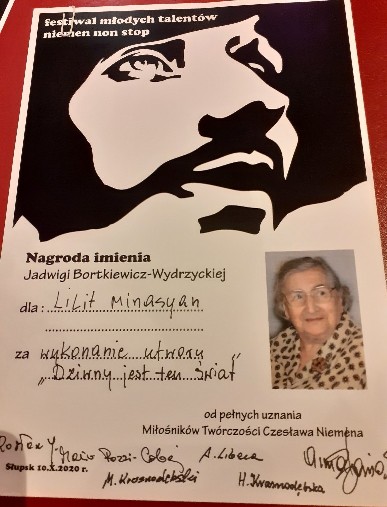 festiwal młodych talentów
niemen non stop
Nagroda imienia
Jadwigi Bortkiewicz-Wydrzyckiej
dla: Lilit Minasyan
za wykonanie utworu
„Dziwny jest ten świat"
od pełnych uznania
Miłośników Twórczości Czesława Niemena
A. Libera
Słupsk 10.X.2020 r.
M. Krasnodębski H. Krasnodębska